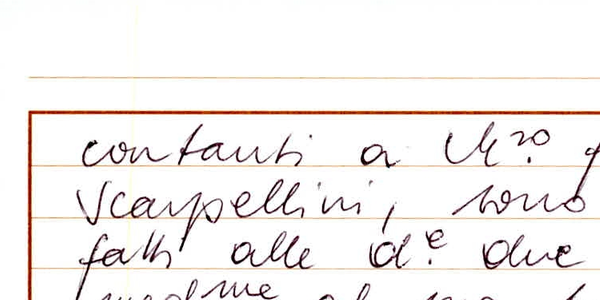 contanti a M.ro
Scarpellini, sono
fatti alle d.e due